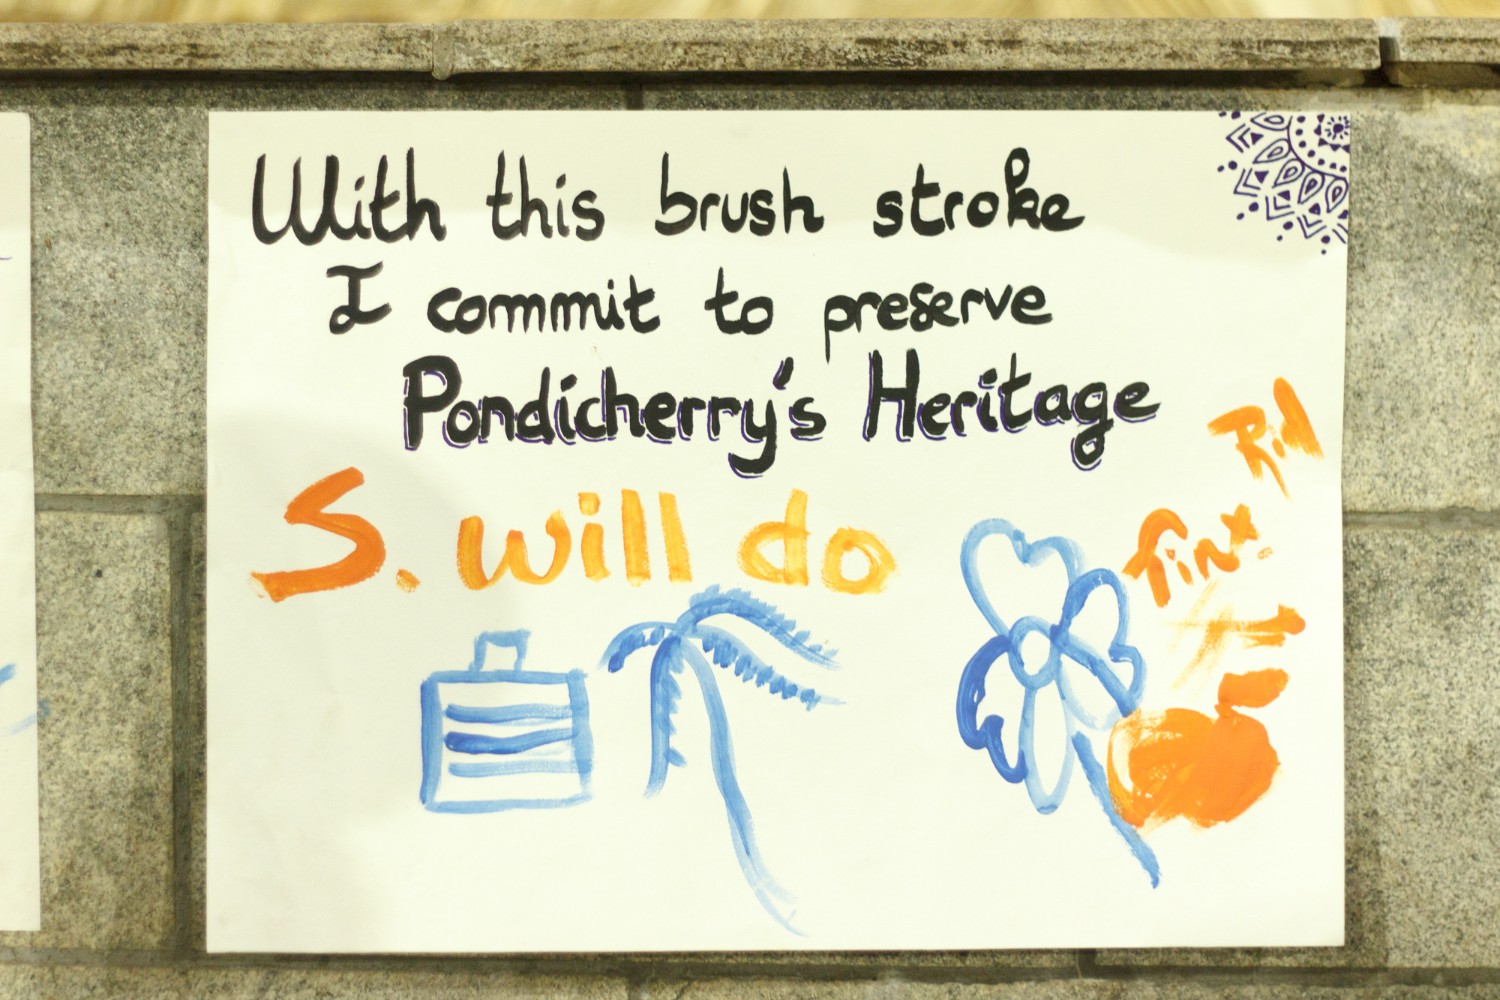 With this brush stroke
I commit to preserve
Pondicherry's Heritage
S. will do